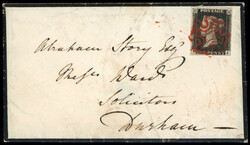 POSTAGE
Abraham Story Esq
Messrs Wards
Solicitors
Durham